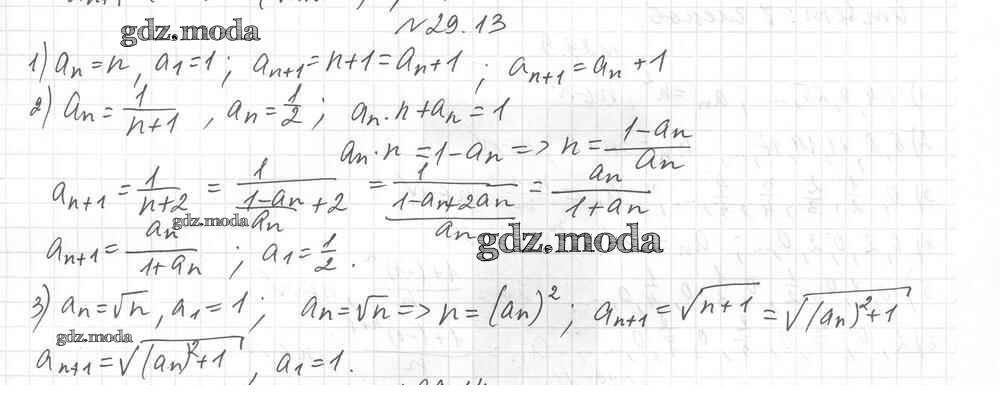 №29.13
gdz.moda
1) aₙ = n, a₁ = 1; aₙ₊₁ = n+1 = aₙ+1; aₙ₊₁ = aₙ+1
2) aₙ = 1/(n+1), aₙ = 1/2; aₙ·n+aₙ = 1
aₙ·n = 1-aₙ => n = (1-aₙ)/aₙ
aₙ₊₁ = 1/(n+2) = 1/((1-aₙ)/aₙ + 2) = 1/((1-aₙ+2aₙ)/aₙ) = aₙ/(1+aₙ)
gdz.moda
gdz.moda
aₙ₊₁ = aₙ/(1+aₙ); a₁ = 1/2.
3) aₙ = √n, a₁ = 1; aₙ = √n => n = (aₙ)²; aₙ₊₁ = √(n+1) = √((aₙ)²+1)
gdz.moda
aₙ₊₁ = √((aₙ)²+1), a₁ = 1.